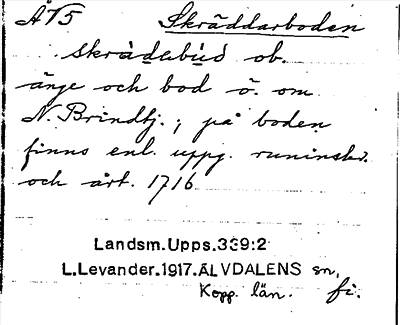 ÅV5 Skräddarboden
skrädabúð ob.
änge och bod ö. om
N. Brindbj.; på boden
finns enl. uppg. runinskr.
och årt. 1716
Landsm.Upps.339:2
L.Levander.1917.ÄLVDALENS sn,
Kopp. län. fi.